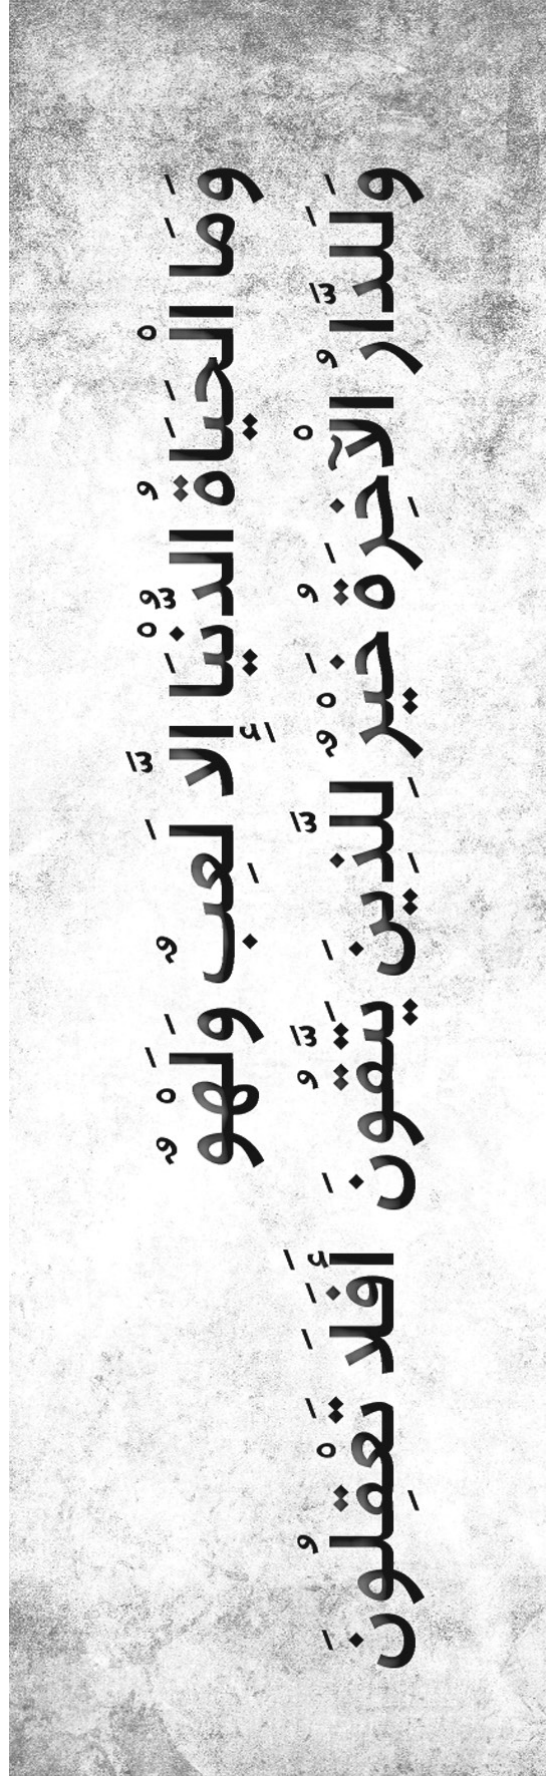 وَمَا الْحَيَاةُ الدُّنْيَا إِلَّا لَعِبٌ وَلَهْوٌ
وَلَلدَّارُ الْآخِرَةُ خَيْرٌ لِلَّذِينَ يَتَّقُونَ أَفَلَا تَعْقِلُونَ